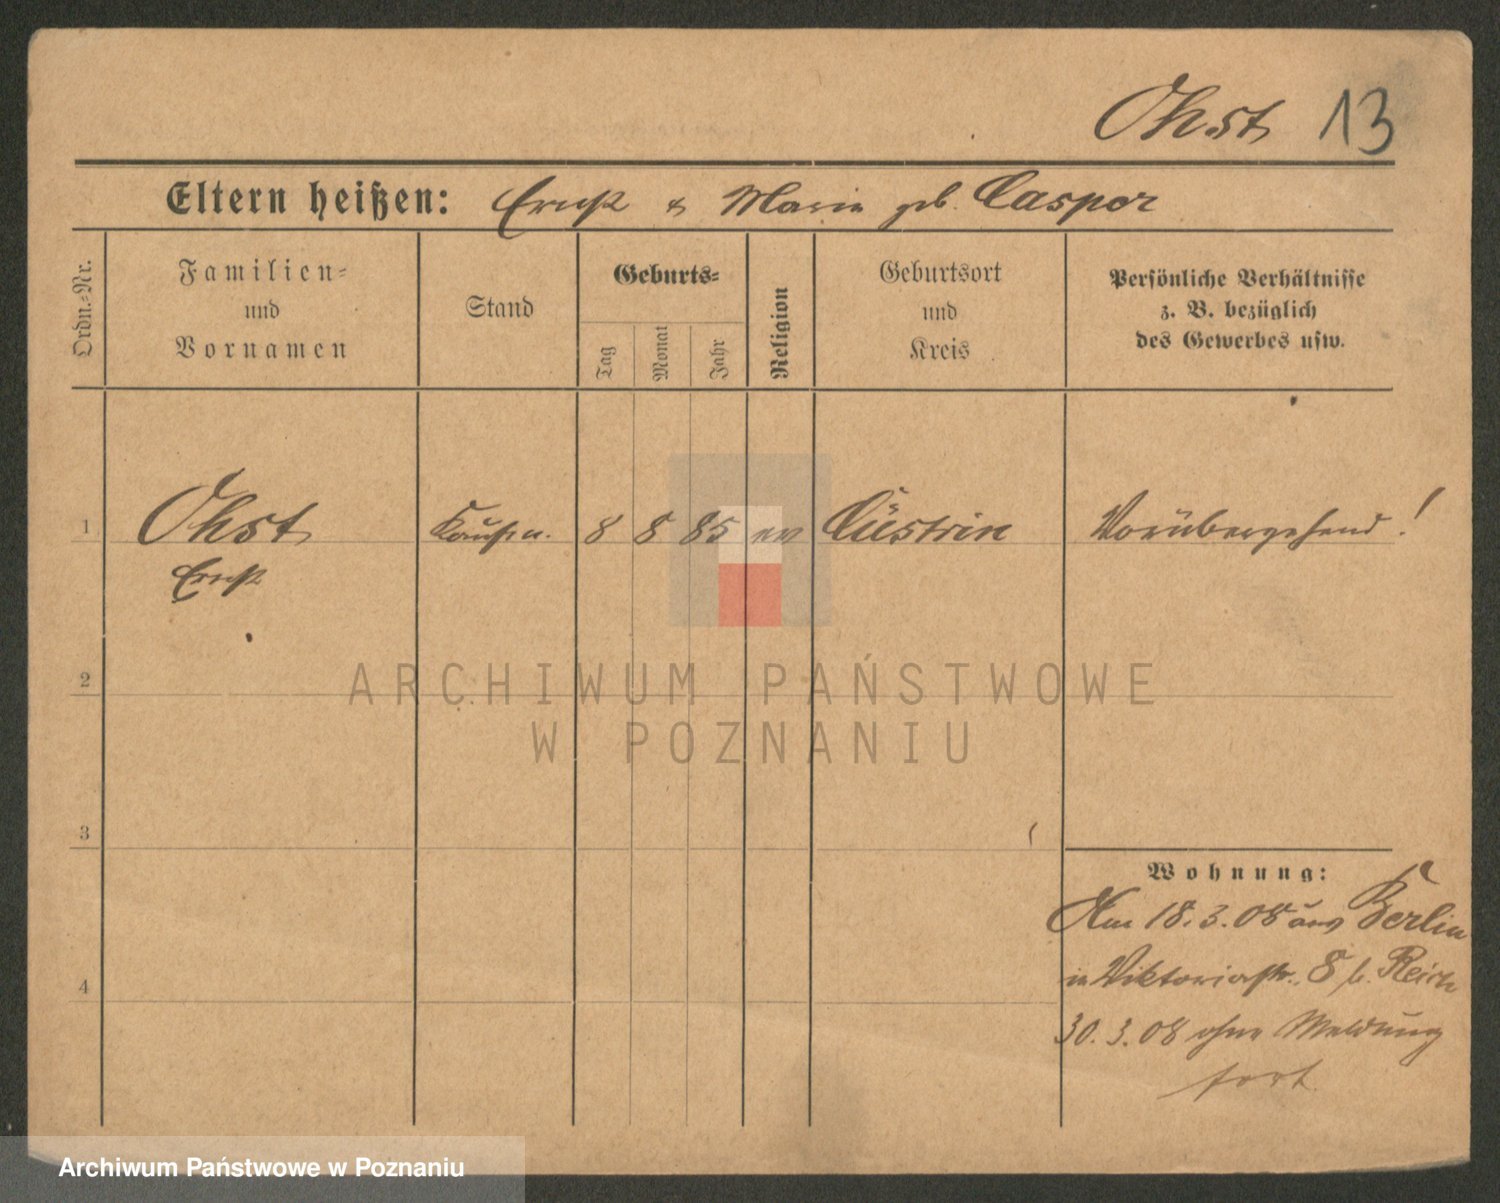 Ohst 13
Eltern heißen: Ernst & Marie geb. Casper
Ordn.-Nr.
Familien-
und
Vornamen
Stand
Geburts-
Tag
Monat
Jahr
Religion
Geburtsort
und
Kreis
Persönliche Verhältnisse
z. B. bezüglich
des Gewerbes usw.
1 Ohst Kaufm. 8 8 85 ev Cüstrin Vorübergehend!
Ernst
ARCHIWUM PAŃSTWOWE
W POZNANIU
2
3
Wohnung:
Am 18.3.08 aus Berlin
in Viktoriastr. 8 b.
4
30.3.08 ohne Meldung
fort
Archiwum Państwowe w Poznaniu